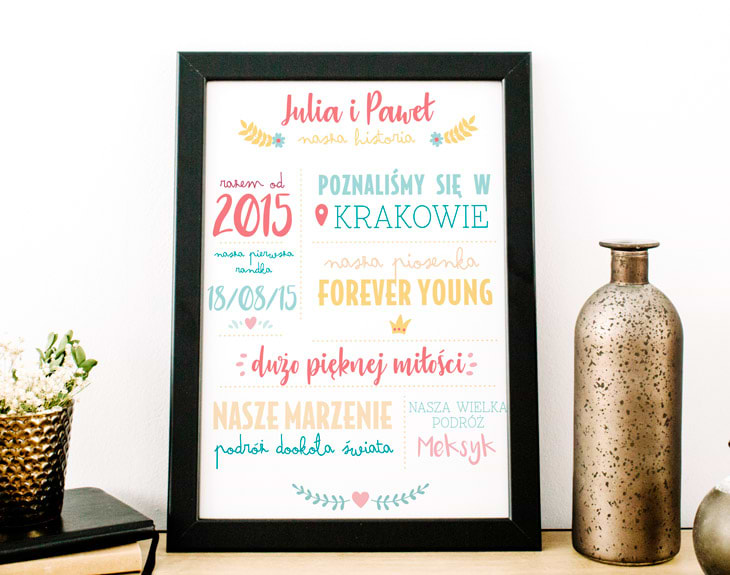 Julia i Paweł
nasza historia
razem od
2015
nasza pierwsza
randka
18/08/15
POZNALIŚMY SIĘ W
KRAKOWIE
nasza piosenka
FOREVER YOUNG
dużo pięknej miłości
NASZE MARZENIE
podróż dookoła świata
NASZA WIELKA
PODRÓŻ
Meksyk